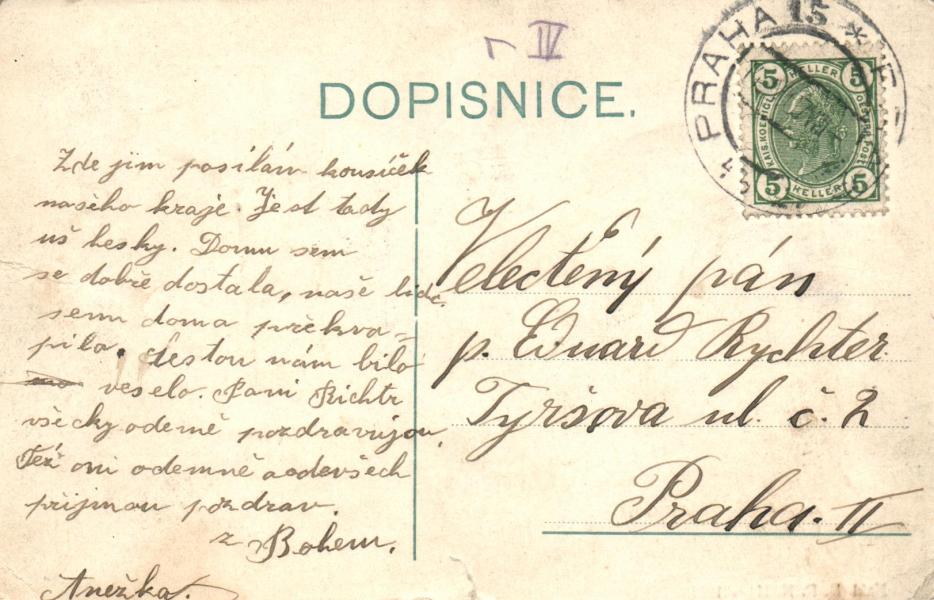 IV
DOPISNICE.
PRAHA 15 *
5 HELLER 5
KAIS. KOENIGL.
OESTERR. POST
5 HELLER 5
Zde jim posílám kousíček
našeho kraje. Je st tady
uš hesky. Domu sem
se dobře dostala, naše lidi
semu doma překva-
pila. Cestou nám bilo
veselo. Pani Richtr
všecky odemě pozdravujou,
Též oni odemně a odevšech
přijmou pozdrav.
z Bohem.
Anežka.
Velectěný pán
p. Eduard Rychter
Tyršova ul. č. 2
Praha. II